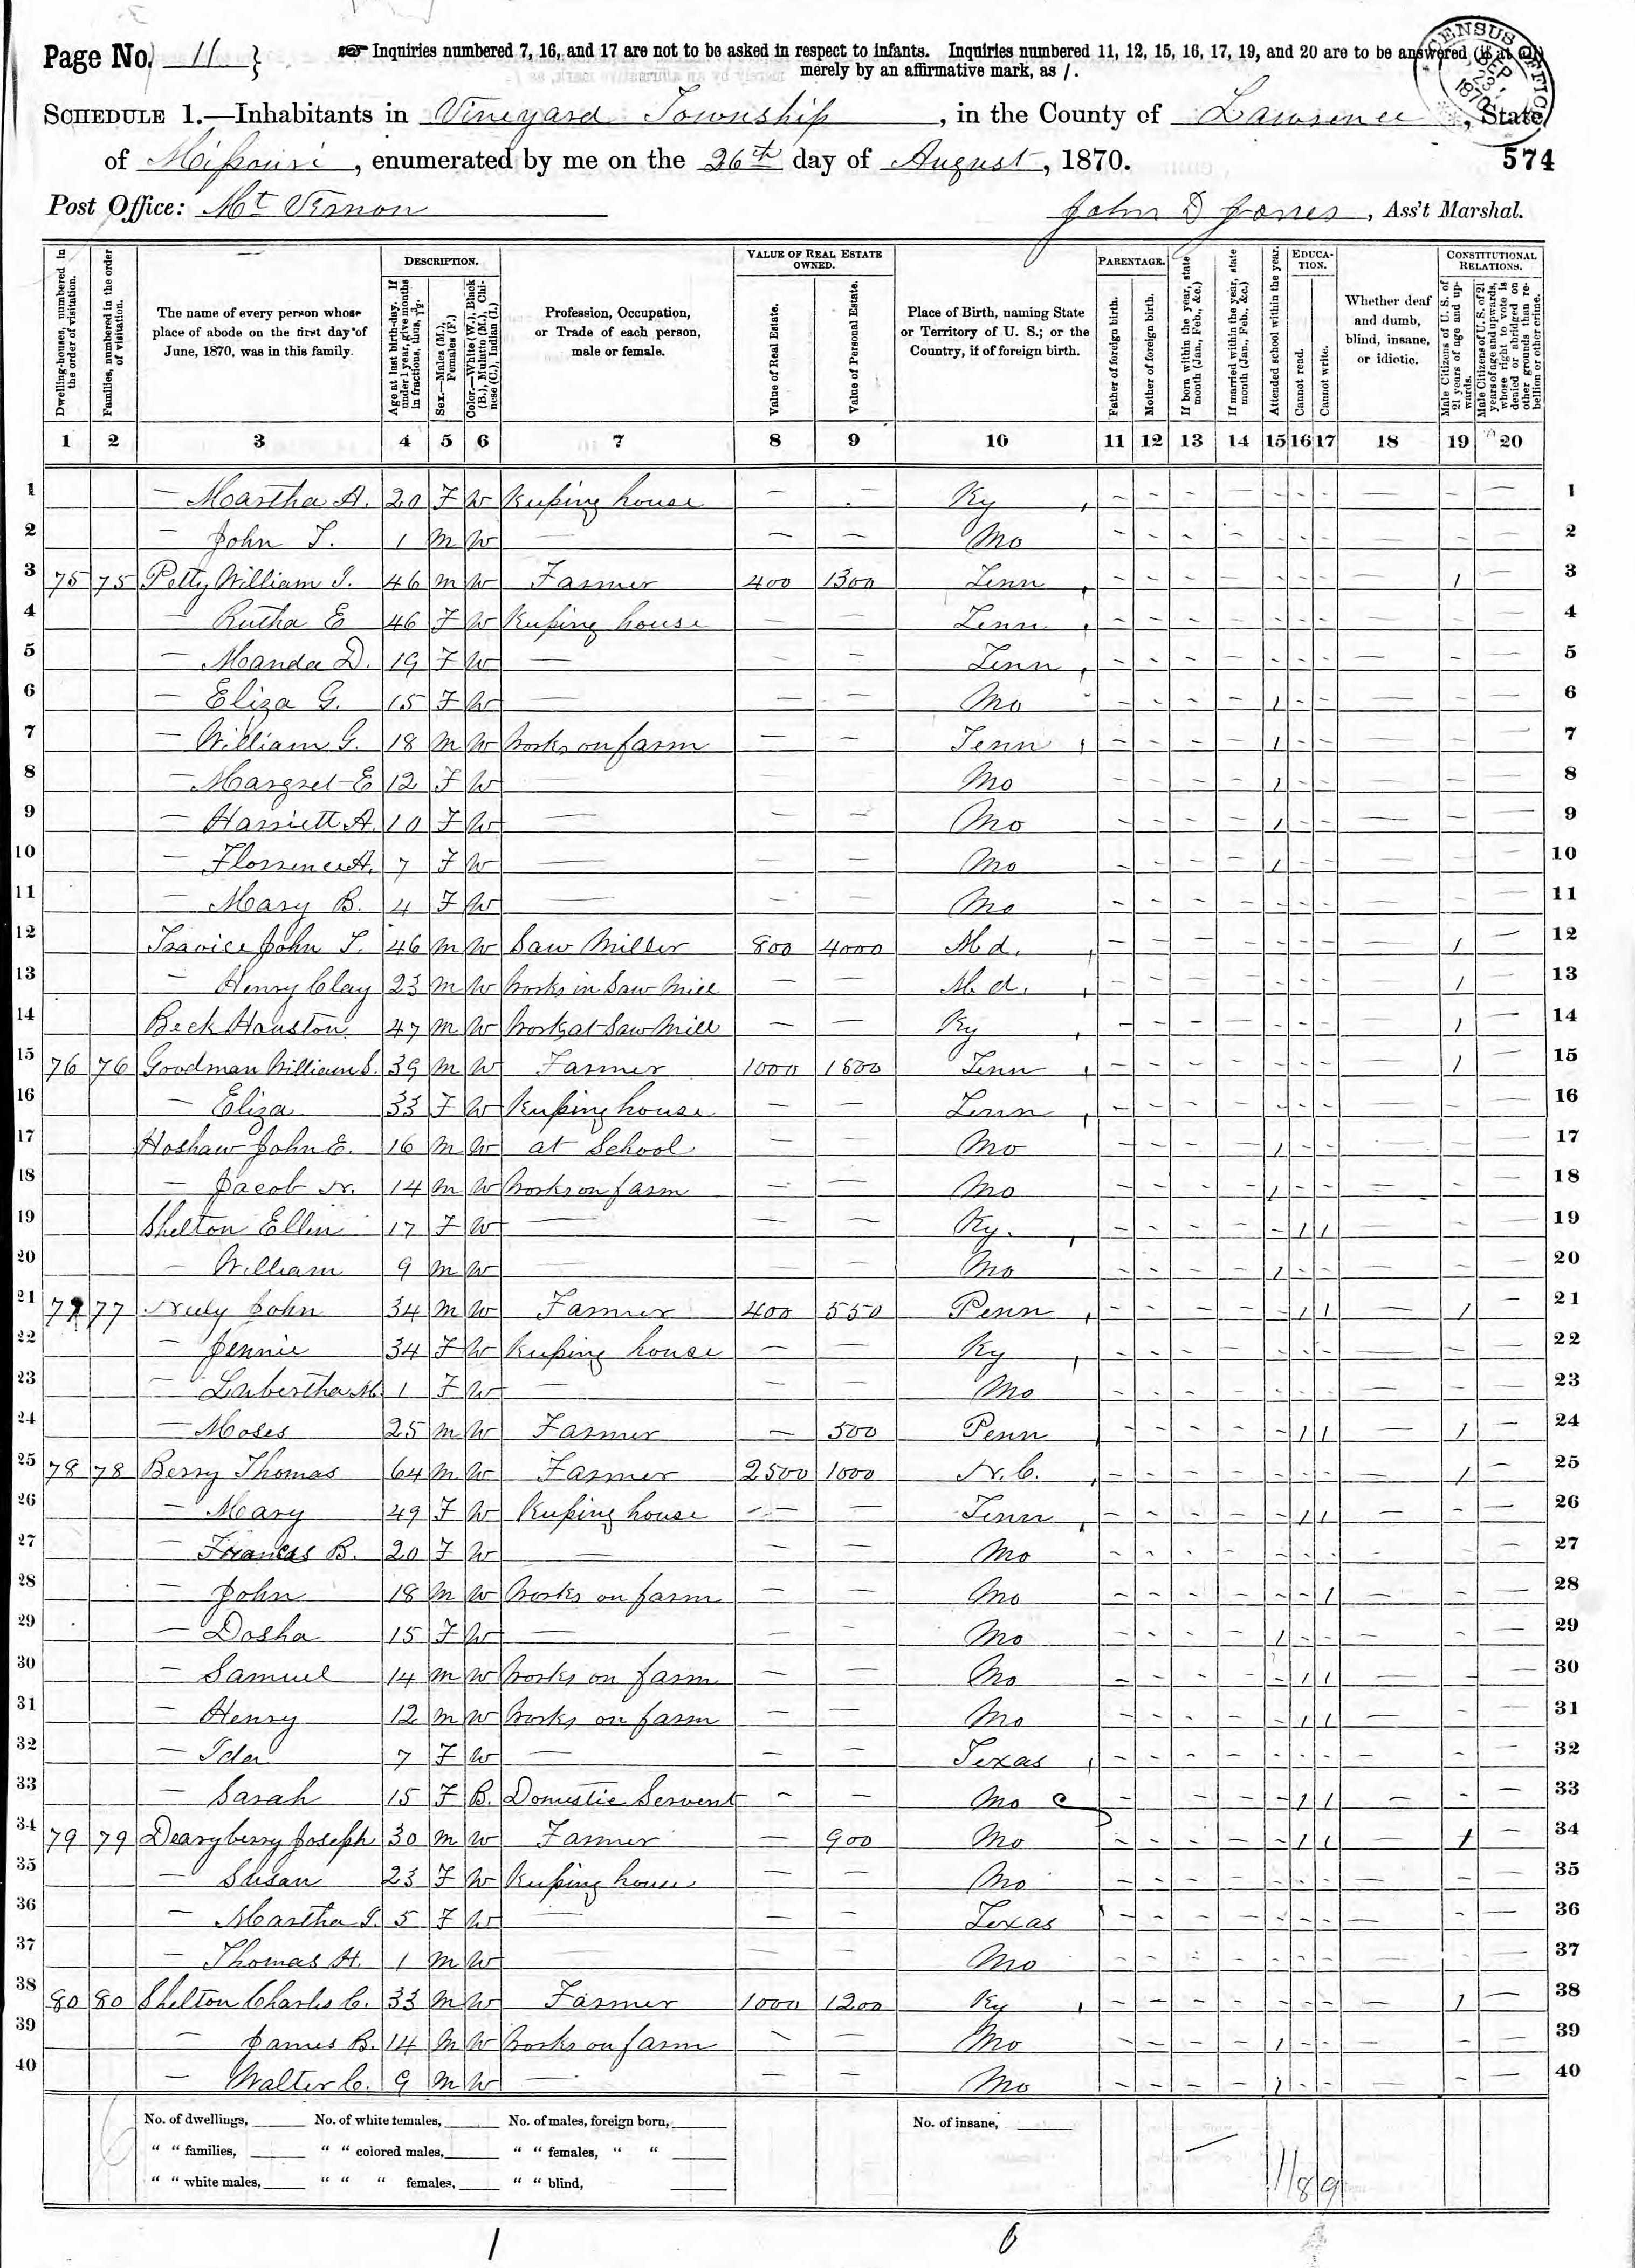 Page No. 11 } Inquiries numbered 7, 16, and 17 are not to be asked in respect to infants. Inquiries numbered 11, 12, 15, 16, 17, 19, and 20 are to be answered (if at all)
merely by an affirmative mark, as /.
CENSUS OFFICE SEP 23 1870
SCHEDULE 1.—Inhabitants in Vineyard Township, in the County of Lawrence, State
of Missouri, enumerated by me on the 26th day of August, 1870. 574
Post Office: Mt Vernon John D Jones, Ass't Marshal.
Dwelling-houses, numbered in the order of visitation.
Families, numbered in the order of visitation.
The name of every person whose place of abode on the first day of June, 1870, was in this family.
DESCRIPTION.
Age at last birth-day. If under 1 year, give months in fractions, thus, 3/12.
Sex.—Males (M.), Females (F.)
Color.—White (W.), Black (B.), Mulatto (M.), Chinese (C.), Indian (I.)
Profession, Occupation, or Trade of each person, male or female.
VALUE OF REAL ESTATE OWNED.
Value of Real Estate.
Value of Personal Estate.
Place of Birth, naming State or Territory of U. S.; or the Country, if of foreign birth.
PARENTAGE.
Father of foreign birth.
Mother of foreign birth.
If born within the year, state month (Jan., Feb., &c.)
If married within the year, state month (Jan., Feb., &c.)
Attended school within the year.
EDUCATION.
Cannot read.
Cannot write.
Whether deaf and dumb, blind, insane, or idiotic.
CONSTITUTIONAL RELATIONS.
Male Citizens of U. S. of 21 years of age and upwards.
Male Citizens of U. S. of 21 years of age and upwards, whose right to vote is denied or abridged on other grounds than rebellion or other crime.
1 2 3 4 5 6 7 8 9 10 11 12 13 14 15 16 17 18 19 20
1 — Martha A. 20 F W Keeping house — — Ky 1
2 — John T. 1 M W — — — Mo 2
3 75 75 Petty William J. 46 M W Farmer 400 1300 Tenn 1 3
4 — Rutha E 46 F W Keeping house — Tenn 4
5 — Manda D. 19 F W — — — Tenn 5
6 — Eliza G. 15 F W — — — Mo 1 6
7 — William G. 18 M W Works on farm — — Tenn 1 7
8 — Margret E 12 F W — — — Mo 1 8
9 — Harriett A. 10 F W — — — Mo 1 9
10 — Florrence A. 7 F W — — — Mo 1 10
11 — Mary B. 4 F W — — — Mo 11
12 Travice John T. 46 M W Saw Miller 800 4000 Md. 1 12
13 — Henry Clay 23 M W Works in Saw Mill — — Md. 1 13
14 Beck Hauston 47 M W Works at Saw Mill — — Ky 1 14
15 76 76 Goodman William S. 39 M W Farmer 1000 1500 Tenn 1 15
16 — Eliza 33 F W Keeping house — — Tenn 16
17 Hoshaw John E. 16 M W at School — — Mo 1 17
18 — Jacob N. 14 M W Works on farm — — Mo 1 18
19 Shelton Ellen 17 F W — — — Ky. 1 1 19
20 — William 9 M W — — — Mo 1 20
21 77 77 Neely John 34 M W Farmer 400 550 Penn 1 1 1 21
22 — Jennie 34 F W Keeping house — — Ky 22
23 — Lubertha M. 1 F W — — — Mo 23
24 — Moses 25 M W Farmer — 500 Penn 1 1 1 24
25 78 78 Berry Thomas 64 M W Farmer 2500 1000 N. C. 1 25
26 — Mary 49 F W Keeping house — — Tenn 1 1 26
27 — Frances B. 20 F W — — — Mo 27
28 — John 18 M W Works on farm — — Mo 1 28
29 — Dosha 15 F W — — — Mo 1 29
30 — Samuel 14 M W Works on farm — — Mo 1 1 30
31 — Henry 12 M W Works on farm — — Mo 1 1 31
32 — Ida 7 F W — — — Texas 32
33 — Sarah 15 F B. Domestic Servent — — Mo 1 1 33
34 79 79 Dearyberry Joseph 30 M W Farmer — 900 Mo 1 1 1 34
35 — Susan 23 F W Keeping house — — Mo 35
36 — Martha J. 5 F W — — — Texas 36
37 — Thomas H. 1 M W — — — Mo 37
38 80 80 Shelton Charles C. 33 M W Farmer 1000 1200 Ky 1 38
39 — James B. 14 M W Works on farm — — Mo 1 39
40 — Walter C. 9 M W — — — Mo 1 40
No. of dwellings, No. of white females, No. of males, foreign born, No. of insane,
" " families, " " colored males, " " females, " "
" " white males, " " " females, " " blind,
11 8 9
1 6